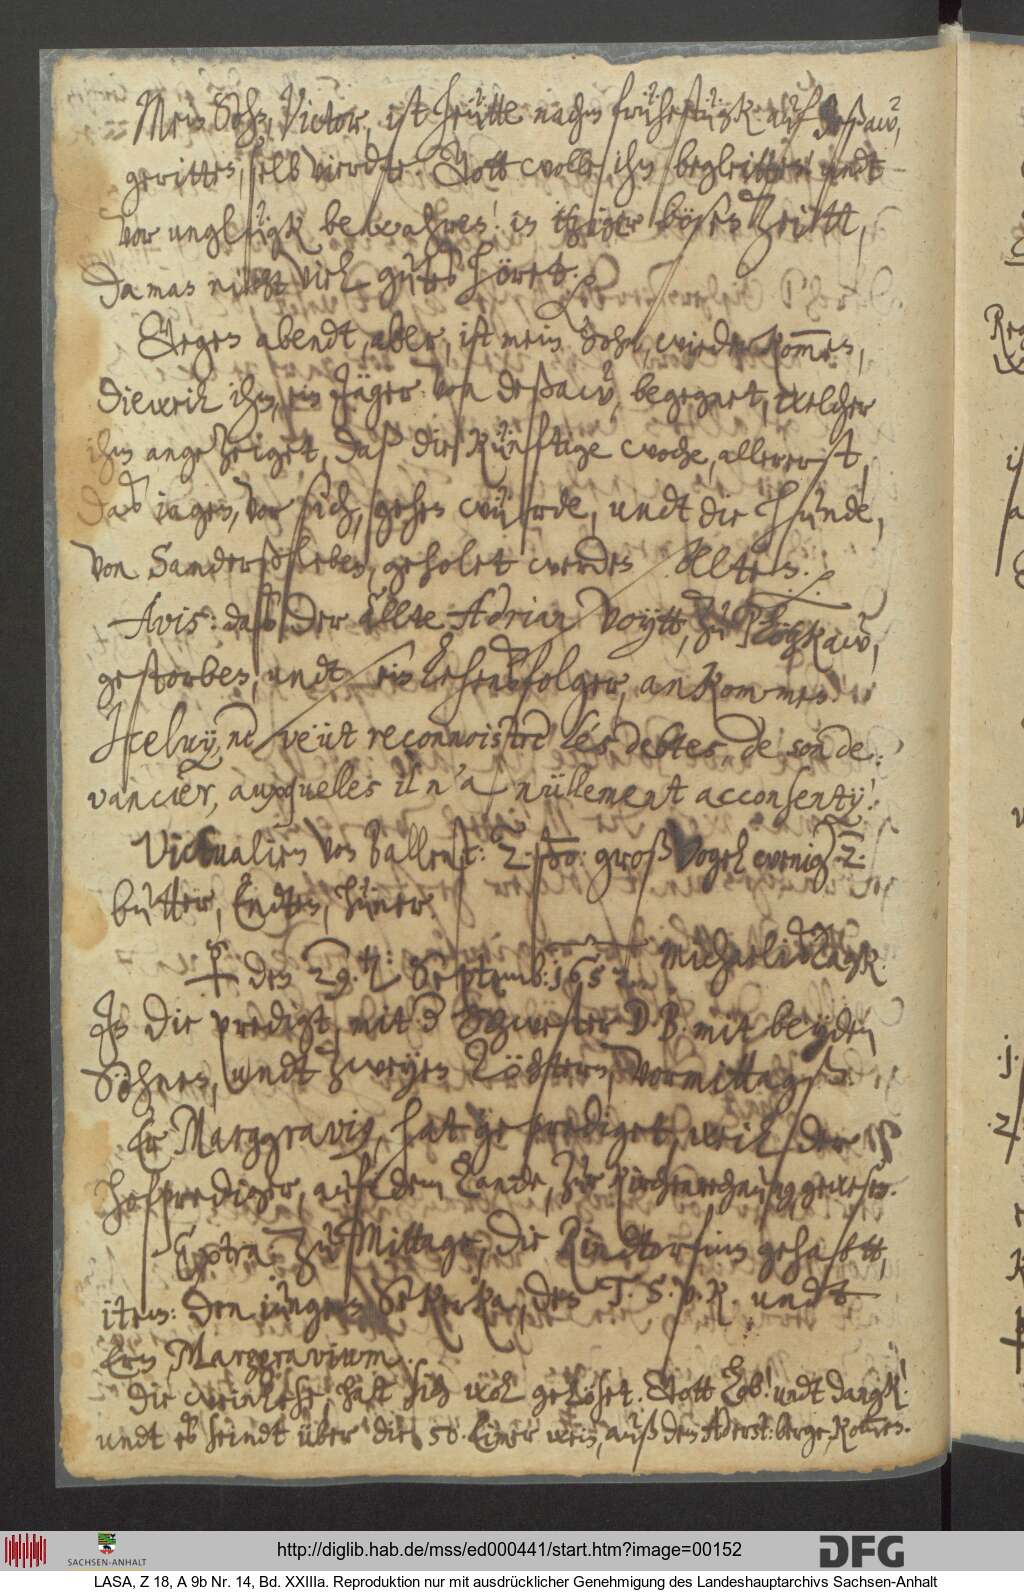 Mein Sohn, Victor, ist heütte nachm frühestügk auf Deßaw,
geritten, selb vierdte. Gott wolle ihn begleitten! undt
vor unglügk bewahren! in itziger bösen Zeitt,
da man nicht viel gutes höret.
Gegen abendt, aber, ist mein Sohn, wiederkommen,
dieweil ihm, ein Jäger von Deßaw, begegnet, welcher
ihm angezeiget, daß die künftige woche, allererst,
das iagen, vor sich, gehen würde, undt die hunde,
von Sanderßleben, geholet werden sollten.
Avis: daß der allte Adrian Voytt, zu Plötzkaw,
gestorben, undt ein Lehensfolger, ankommen.
Iceluy ne veüt reconnoistre les debtes, de son de¬
vancier, auxquelles il n'a nüllement acconsenty.
Victualien von Ballenst: 2 groß vogel wenig 2
butter, Endten, hüner
den 29. Septemb: 1652. Michaelistagk.
In die predigt, mit Schwester D. B. mit beyden
Söhnen, undt zweyen Töchtern, vormittagß.
Er Marggravius, hat geprediget, weil der
hofprediger, aufm dem Lande, zur kirchenrechnung gewesen.
Extra zu Mittage, die Rindtorfinn gehabtt,
item: den iungen Sekerka, den T. S. v. R. undt
Ern Marggravium.
Die weinlese, hatt sich wol gelöset. Gott Lob! undt dangk!
undt es seindt über die 50 Eimer wein, auß dem Aderst: berge, kommen.
http://diglib.hab.de/mss/ed000441/start.htm?image=00152
SACHSEN-ANHALT
DFG
LASA, Z 18, A 9b Nr. 14, Bd. XXIIIa. Reproduktion nur mit ausdrücklicher Genehmigung des Landeshauptarchivs Sachsen-Anhalt